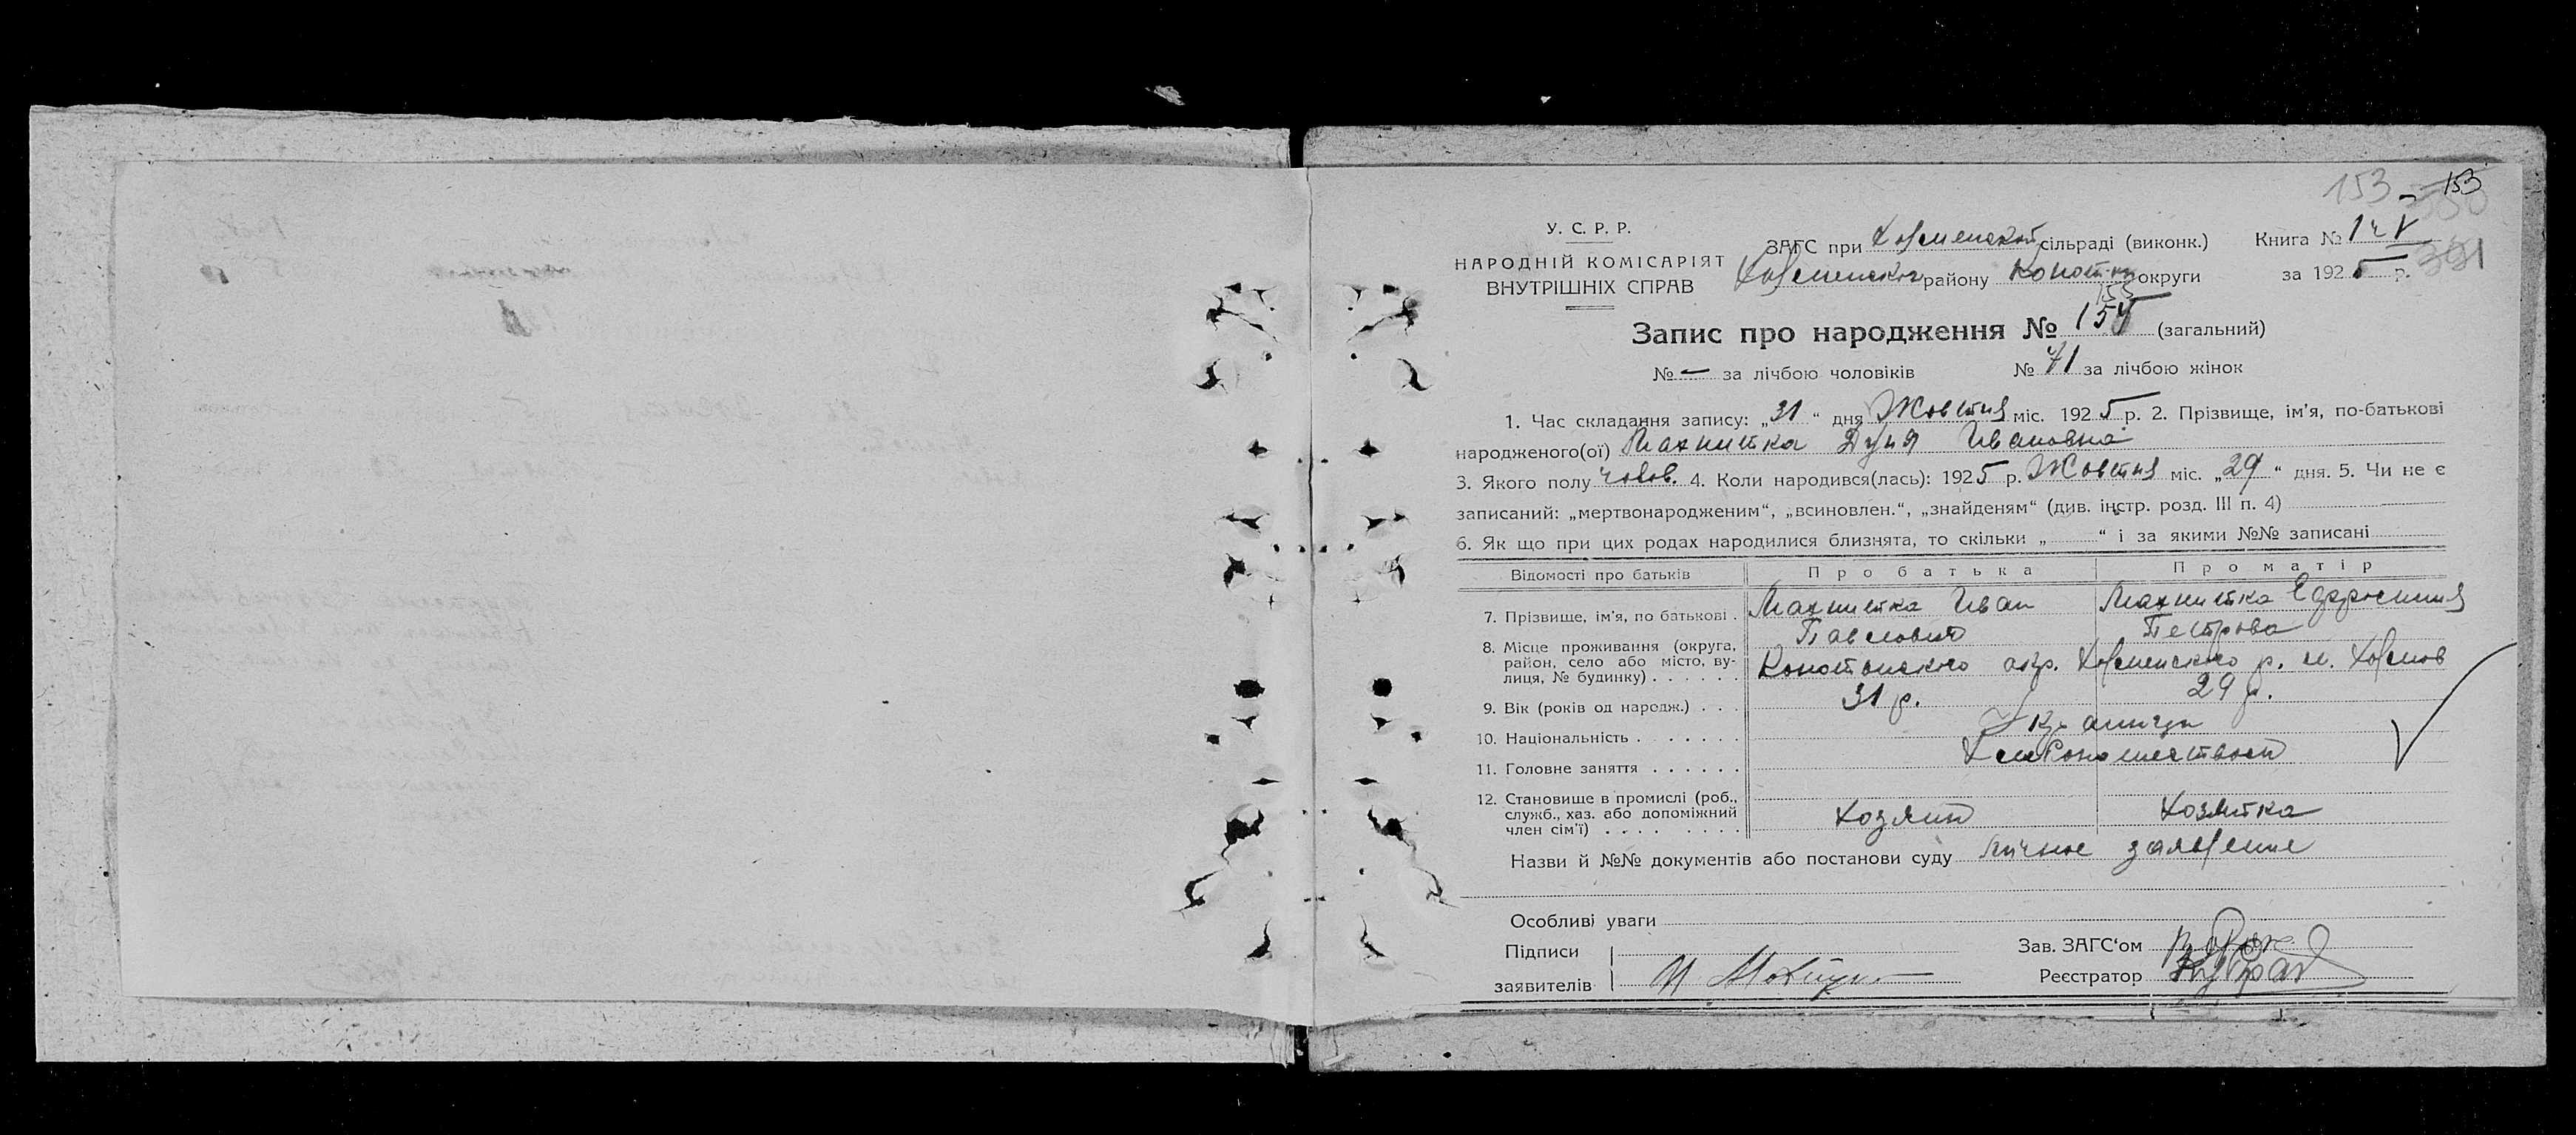 153 153
У. С. Р. Р.
НАРОДНІЙ КОМІСАРІЯТ
ВНУТРІШНІХ СПРАВ
ЗАГС при Холменской сільраді (виконк.) Книга № 1
Холменского району Конот округи за 1925 р.
153
Запис про народження № 154 (загальний)
№ — за лічбою чоловіків № 71 за лічбою жінок
1. Час складання запису: „31“ дня Жовтня міс. 1925 р. 2. Прізвище, ім’я, по-батькові
народженого(ої) Махнитка Дуня Ивановна
3. Якого полу 4. Коли народився(лась): 1925 р. Жовтня міс. „29“ дня. 5. Чи не є
записаний: „мертвонародженим“, „всиновлен.“, „знайденям“ (див. інстр. розд. III п. 4)
6. Як що при цих родах народилися близнята, то скільки „ “ і за якими №№ записані
Відомості про батьків Про батька Про матір
7. Прізвище, ім’я, по батькові . Махнитка Иван Махнитка Ефросиния
Павлович Петрова
8. Місце проживання (округа, район, село або місто, ву-
лиця, № будинку) . . . . . . Конотопского окр. Холменского р. м. Холмов
9. Вік (років од народж.) . . . 31 р. 29 р.
10. Національність . . . . . . .
11. Головне заняття . . . . . .
12. Становище в промислі (роб.,
служб., хаз. або допоміжний
член сім’ї) . . . . . . . . Хозяин Хозяйка
Назви й №№ документів або постанови суду личное заявление
Особливі уваги
Підписи Зав. ЗАГС‘ом
заявителів И Реєстратор